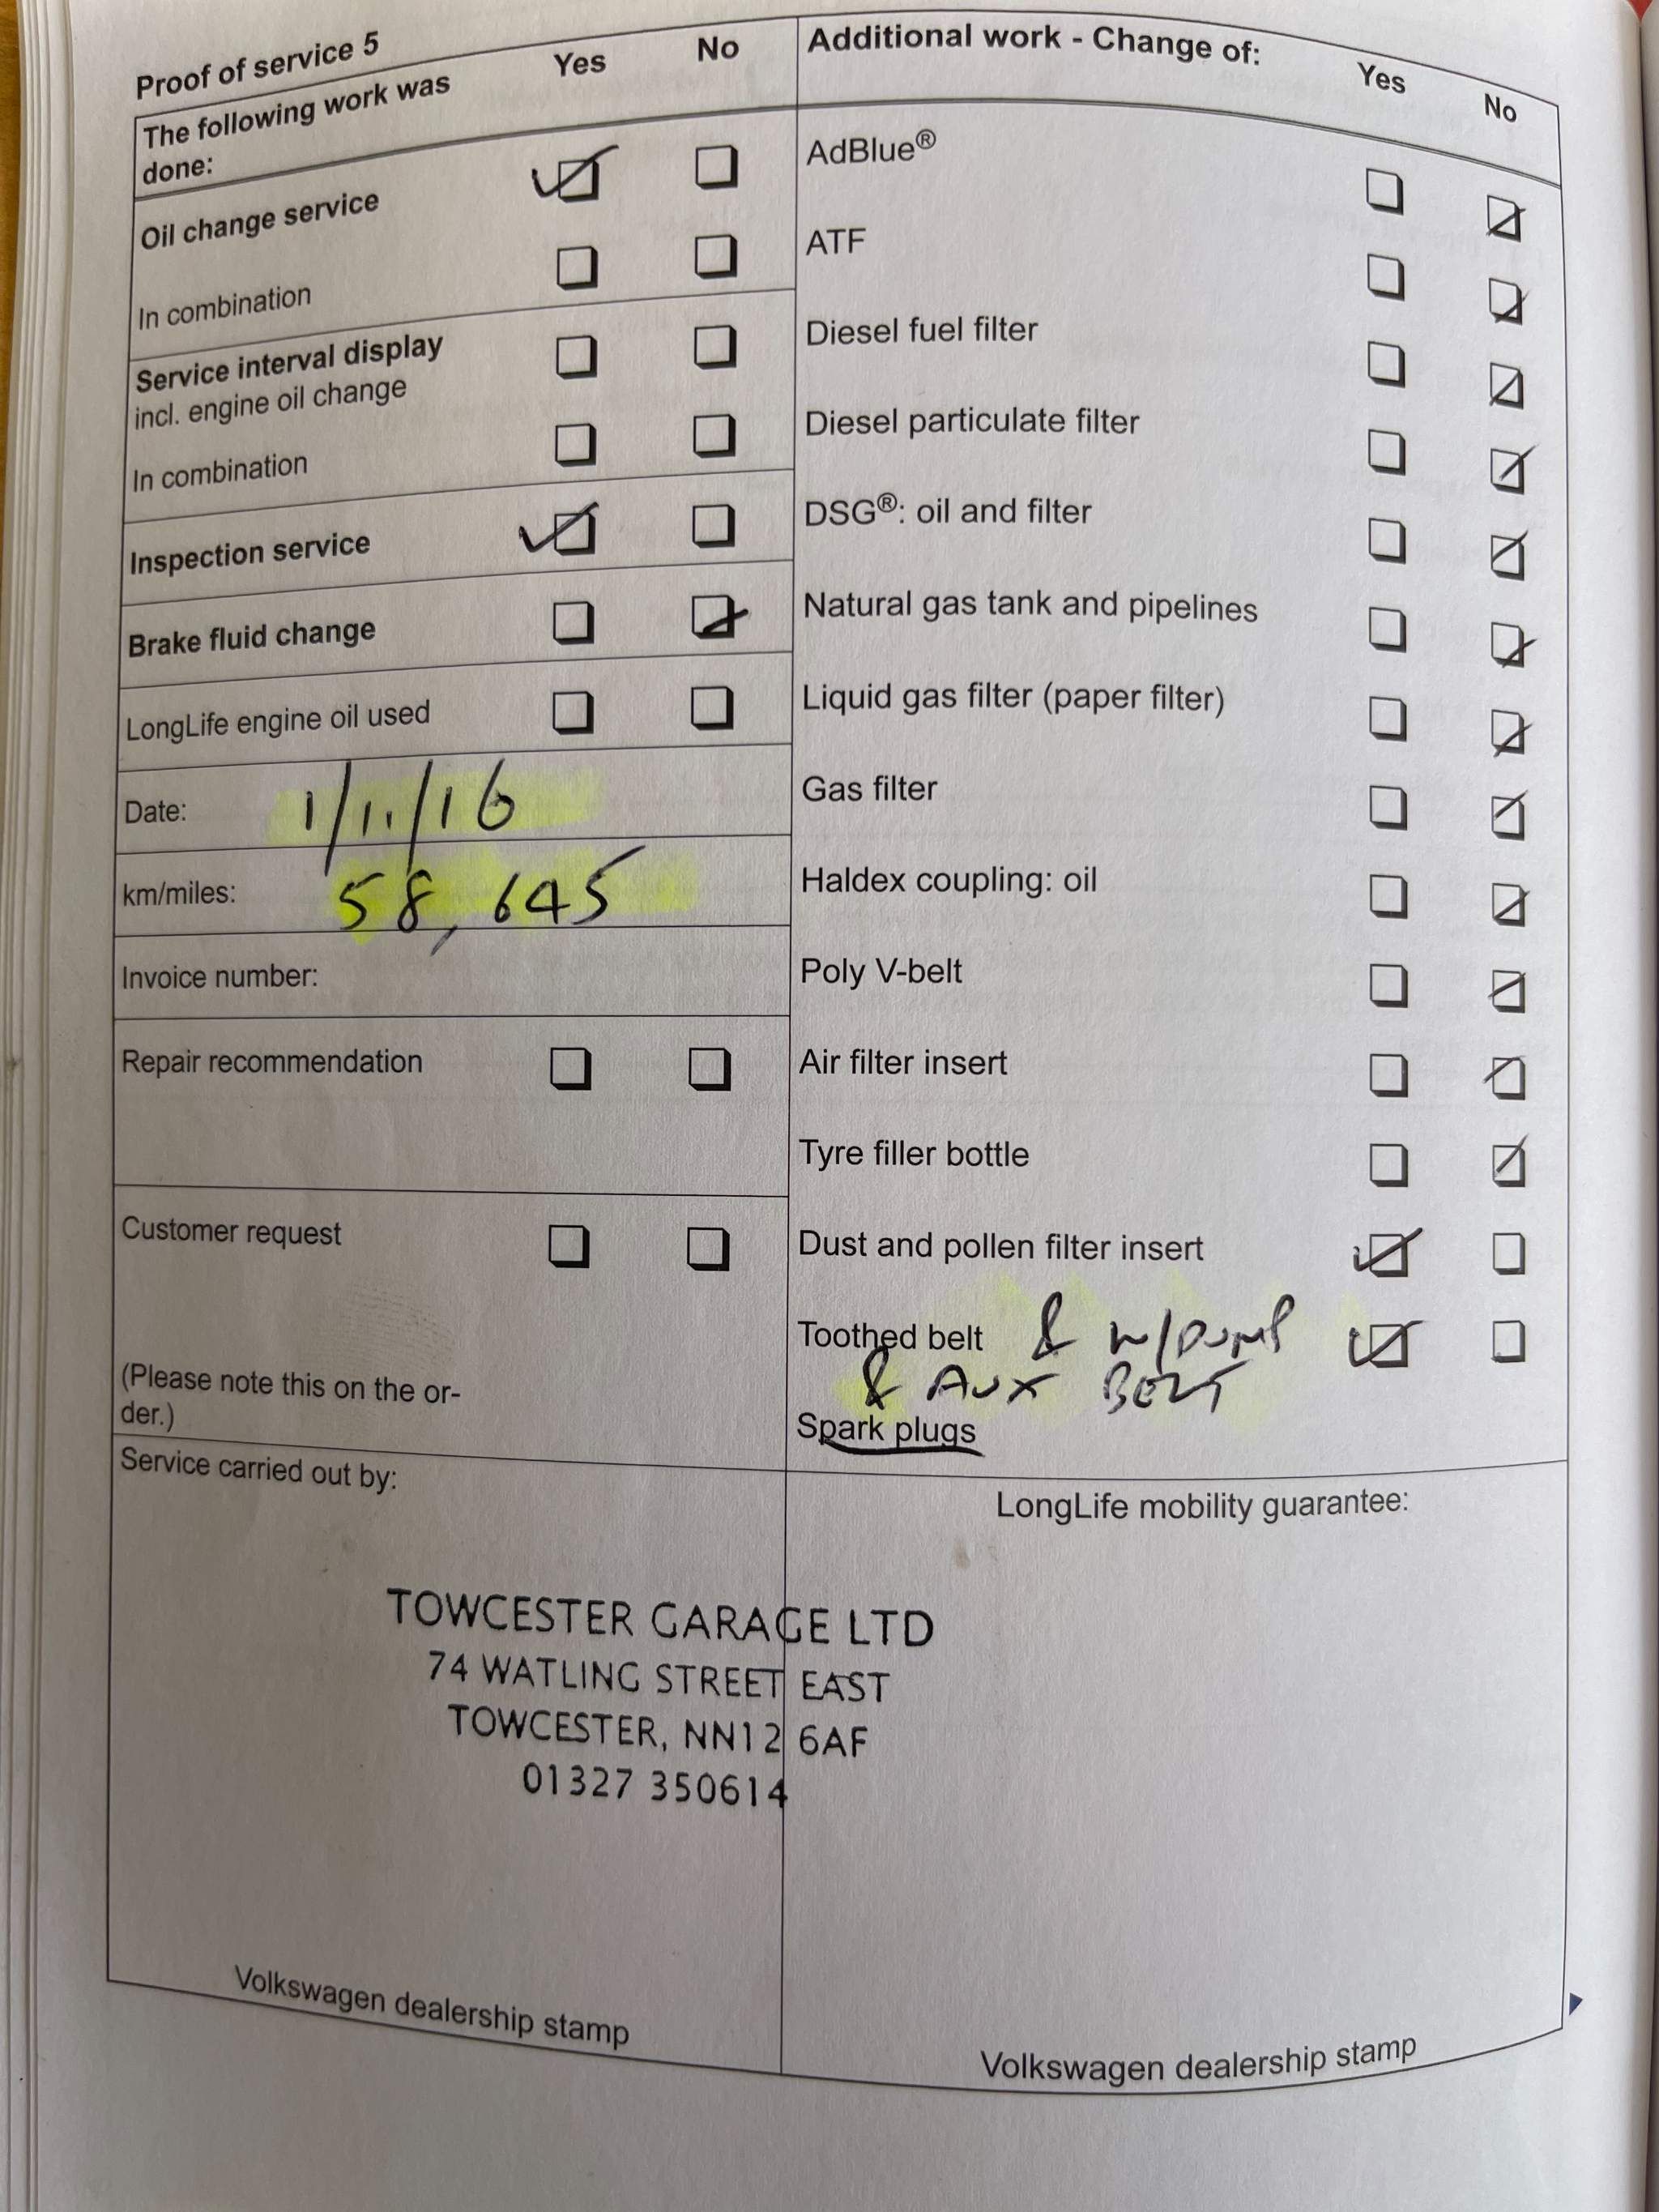 Proof of service 5
The following work was
done:
Yes
No
Oil change service
In combination
Service interval display
incl. engine oil change
In combination
Inspection service
Brake fluid change
LongLife engine oil used
Date: 1/11/16
km/miles: 58,645
Invoice number:
Repair recommendation
Customer request
(Please note this on the or-
der.)
Additional work - Change of:
Yes
No
AdBlue®
ATF
Diesel fuel filter
Diesel particulate filter
DSG®: oil and filter
Natural gas tank and pipelines
Liquid gas filter (paper filter)
Gas filter
Haldex coupling: oil
Poly V-belt
Air filter insert
Tyre filler bottle
Dust and pollen filter insert
Toothed belt & W/PUMP
& AUX BELT
Spark plugs
Service carried out by:
TOWCESTER GARAGE LTD
74 WATLING STREET EAST
TOWCESTER, NN12 6AF
01327 350614
Volkswagen dealership stamp
LongLife mobility guarantee:
Volkswagen dealership stamp